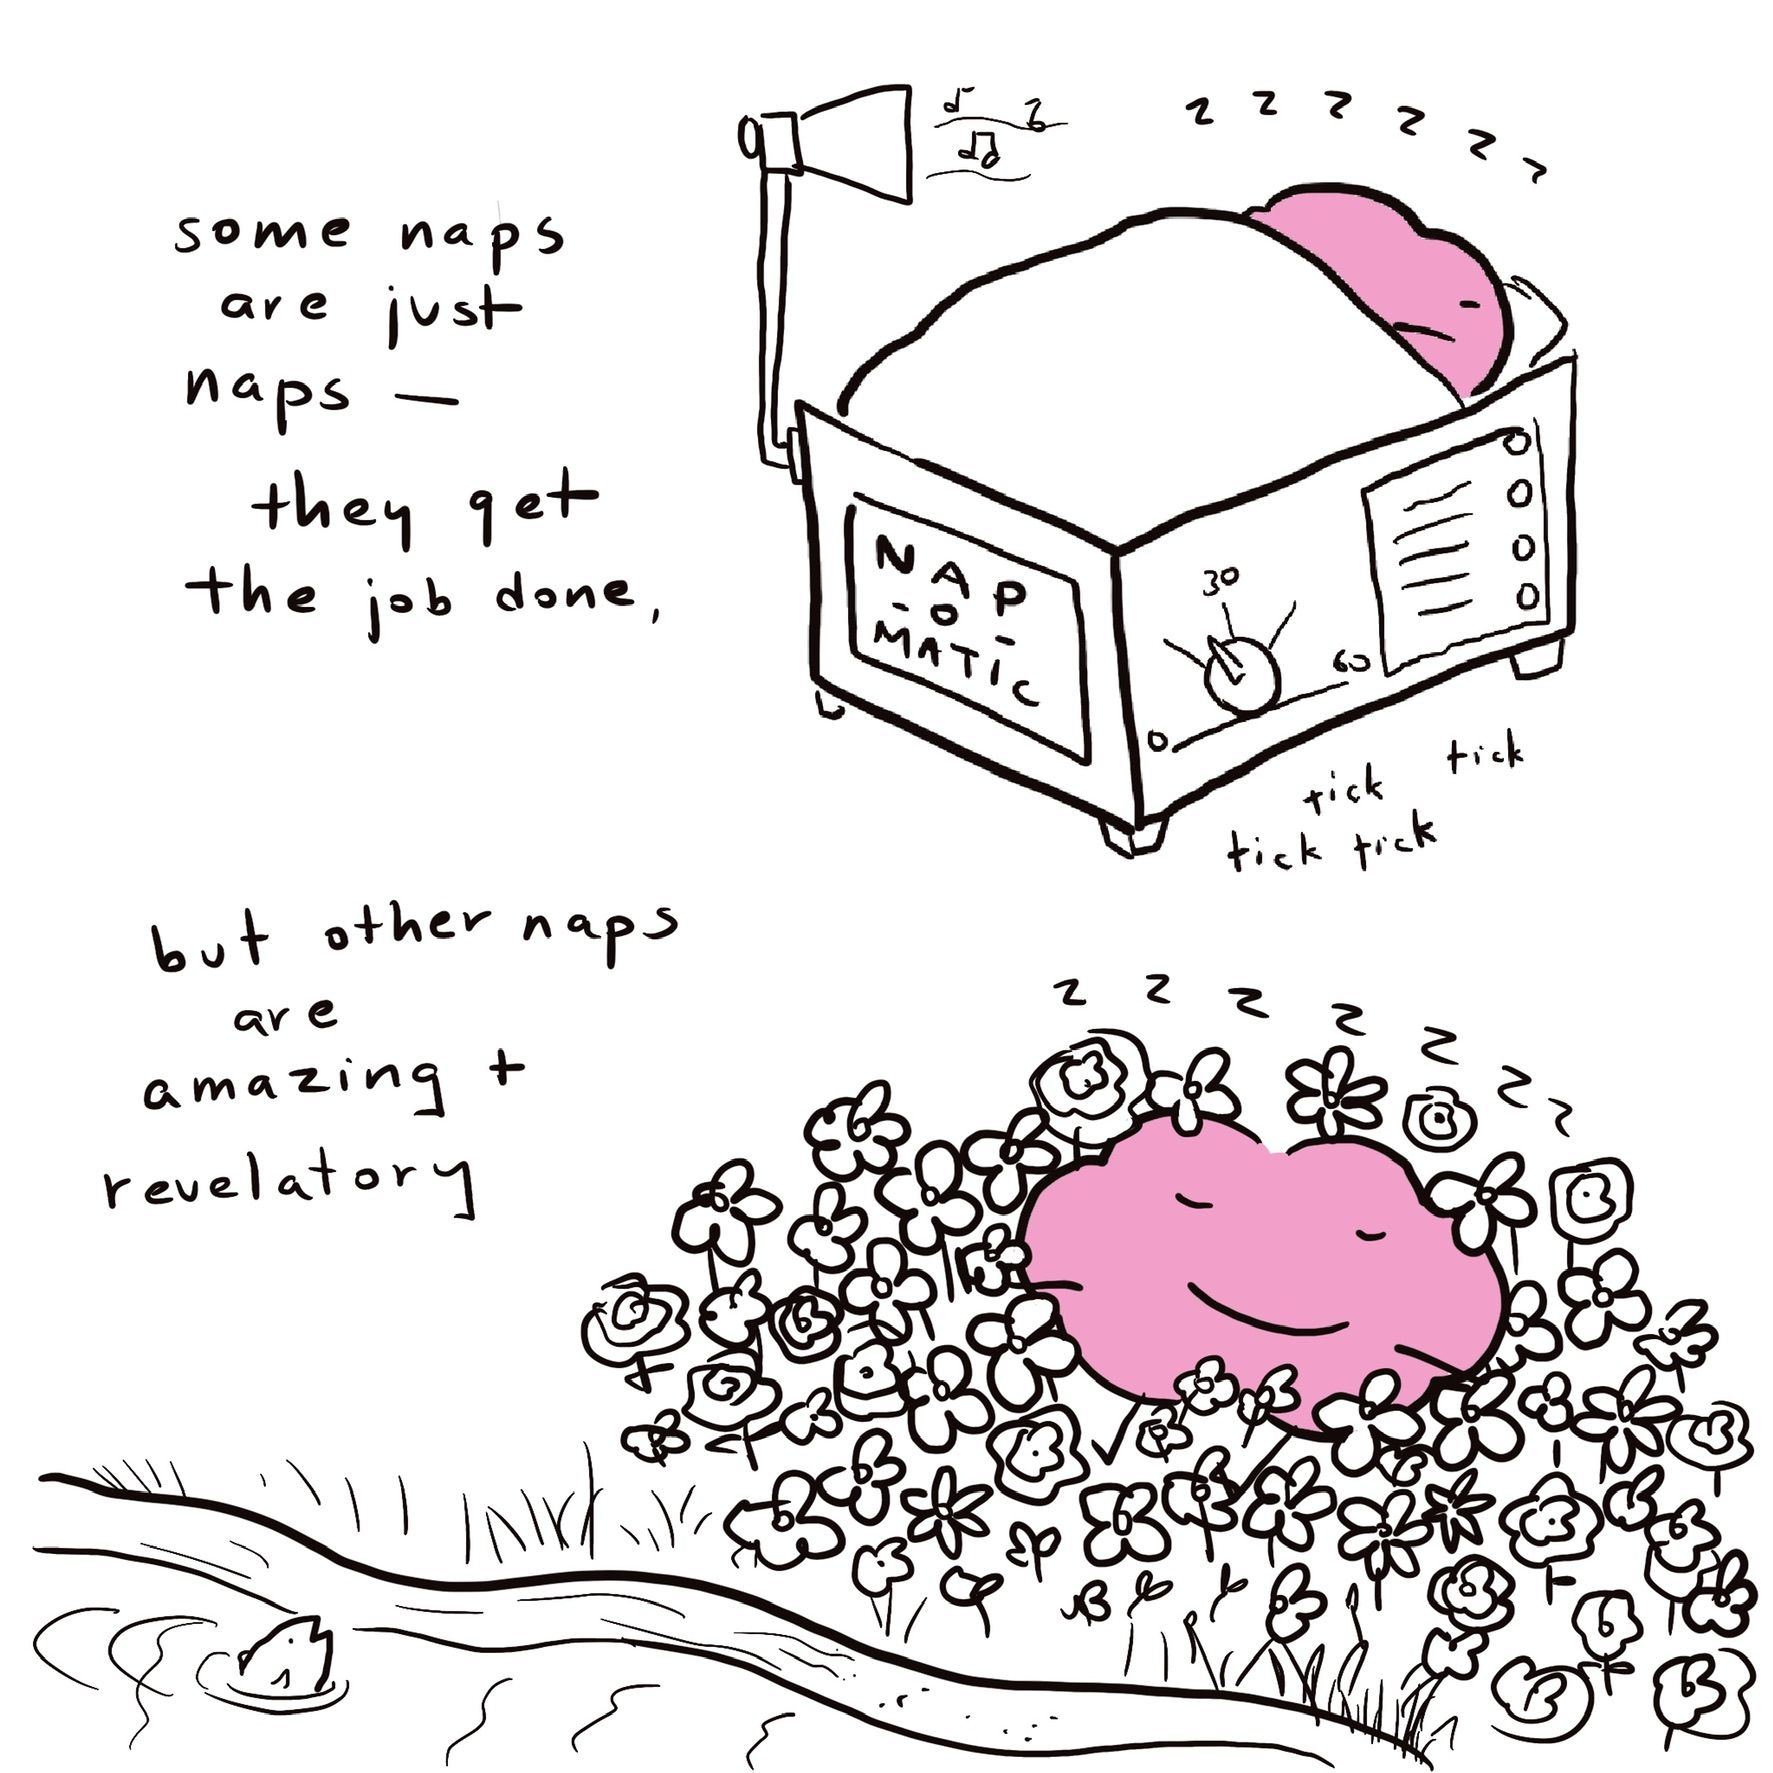 some naps
are just
naps —
they get
the job done,
z z z z z z
NAP
-O-
MATIC
30
60
0
tick
tick
tick tick
but other naps
are
amazing +
revelatory
z z z z z z z